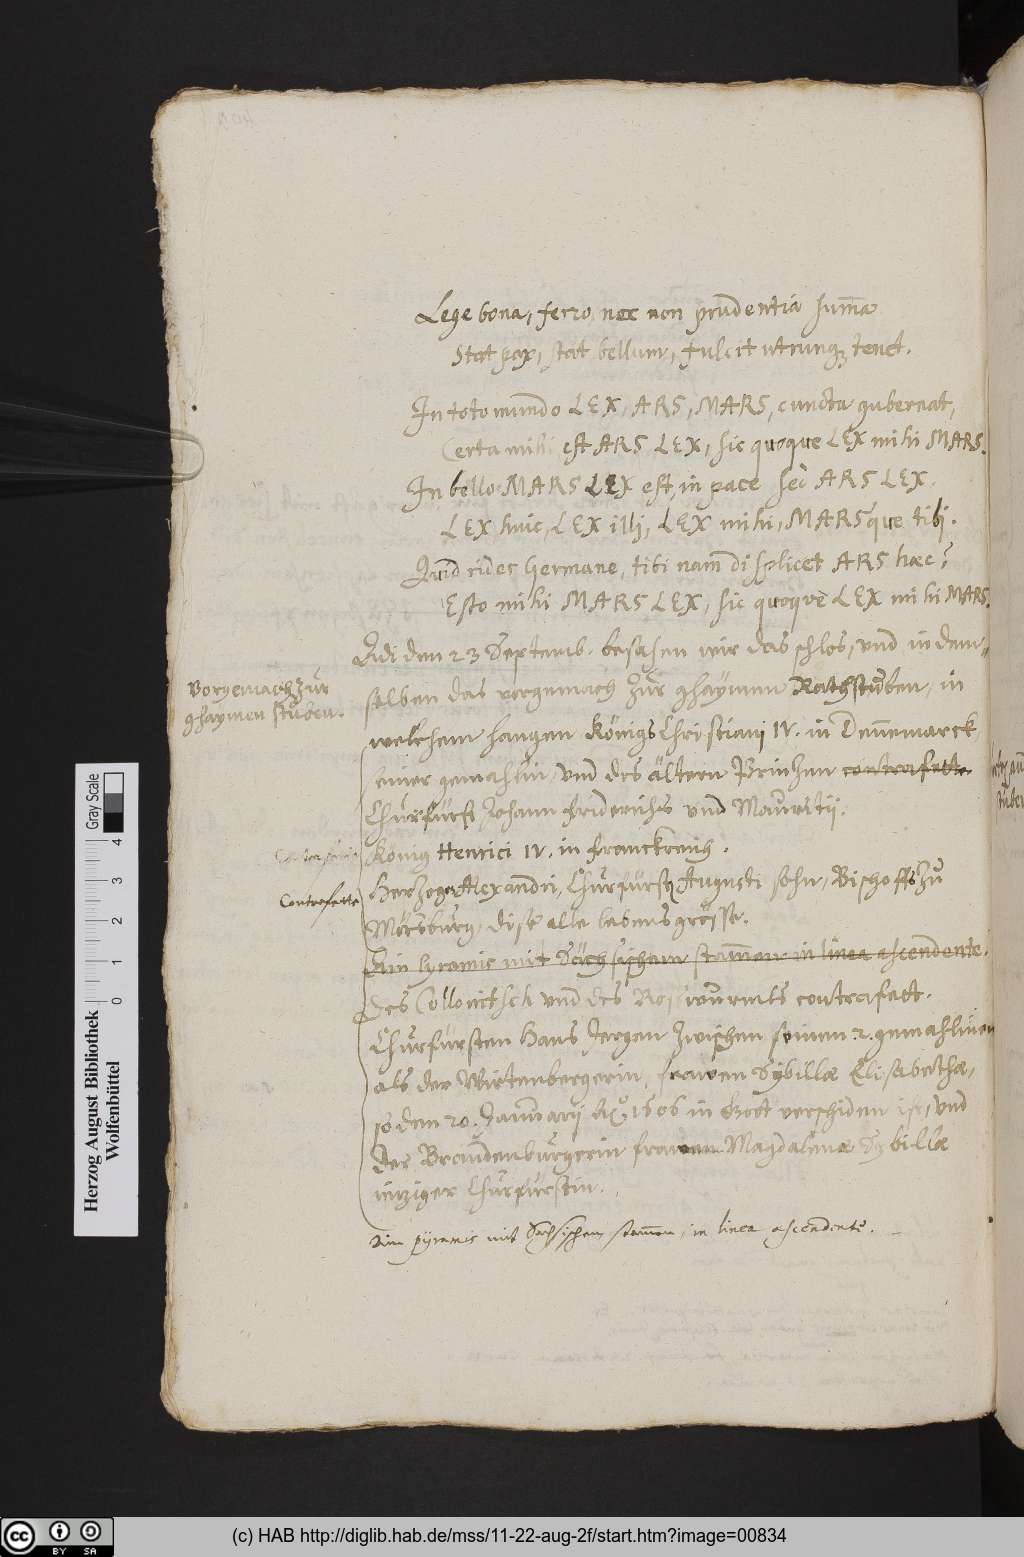 Lege bona, ferro nec non prudentia sum̄a
Stat pax, stat bellum, fulcit utrunq₃ tenet.
In toto mundo LEX, ARS, MARS, cuncta gubernat,
Certa mihi est ARS LEX, sic quoque LEX mihi MARS.
In bello MARS LEX est, in pace sed ARS LEX.
LEX huic, LEX illi, LEX mihi, MARSque tibi.
Quid rides Hermane, tibi nam displicet ARS hæc?
Esto mihi MARS LEX, sic quoque LEX mihi MARS.
Adi den 23 Septemb. besahen wir das schlos, vnd in dem-
Vorgemach zur
ghaymen stuben.
selben das vorgemach zur ghaymen Rathstuben, in
welchem hangen Königs Christiani IV. in Dennemarck,
seiner gemahlin, vnd des ältern Prinzen contrafette
Churfürst Johann Friderichs vnd Mauritij.
König Henrici IV. in Franckreich.
Contrafette
Herzogs Alexandri, Churfürst Augusti sohn, Bischoffs zu
Mörsburg, dise alle lebensgrösse.
Ain pyramis mit Sächsischem stam̄en in linea ascendente.
des Collonitsch vnd des Rosswurmbs contrafett.
Churfürsten Hans Jergen zwischen seinen .2. gemahlinen
als der Wirtenbergerin, frawen Sybillæ Elisabethæ,
so den 20. Januarij Aō. 1606 in Gott verschiden ist, vnd
der Brandenburgerin frawen Magdalenæ Sybillæ
ieziger Churfürstin.
Ain pyramis mit Sächsischem stam̄en, in linea ascendente.
Herzog August Bibliothek
Wolfenbüttel
Gray Scale
0 1 2 3 4
cc BY SA
(c) HAB http://diglib.hab.de/mss/11-22-aug-2f/start.htm?image=00834